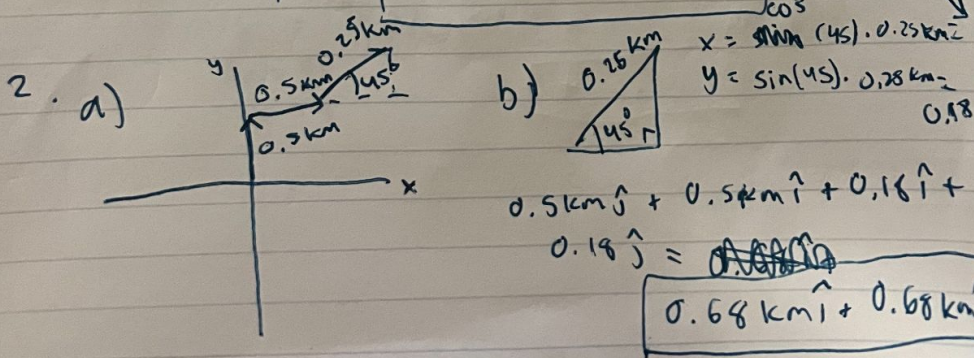 cos
2. a)
y
0.25km
0.5km
45°
0.5km
x
b)
0.25km
45°
x = (45) · 0.25km =
y = sin(45) · 0.25km =
0.18
0.5km ĵ + 0.5km î + 0.18 î +
0.18 ĵ =
0.68 km î + 0.68 km